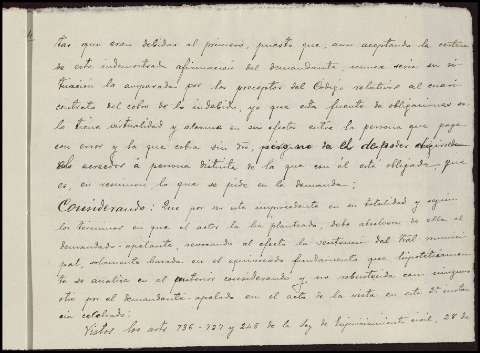 tas que eran debidas al primero, puesto que, aun aceptando la certeza
de esta indemostrada afirmacion del demandante, nunca seria su si-
tuación la amparada por los preceptos del Código relativos al cuasi
contrato del cobro de lo indebido, ya que esta fuente de obligaciones so-
lo tiene virtualidad y alcanza en sus efectos entre la persona que paga
con error y la que cobra sin dro, pero no da el de poder
acreedor á persona distinta de la que con él esta obligada, que
es, en resumen lo que se pide en la demanda;
Considerando: Que por ser esta improcedente en su totalidad y segun
los terminos en que el actor la ha planteado, debe absolverse de ella al
demandado-apelante, revocando al efecto la sentencia del Tral munici-
pal, solamente basada en el equivocado fundamento que hipotéticamen-
te se analiza en el anterior considerando y no robustecida con ningun
otro por el demandante-apelado en el acto de la vista en esta 2ª instan-
cia celebrado;
Vistos los arts 736 - 737 y 248 de la Ley de Enjuiciamiento civil, 28 de